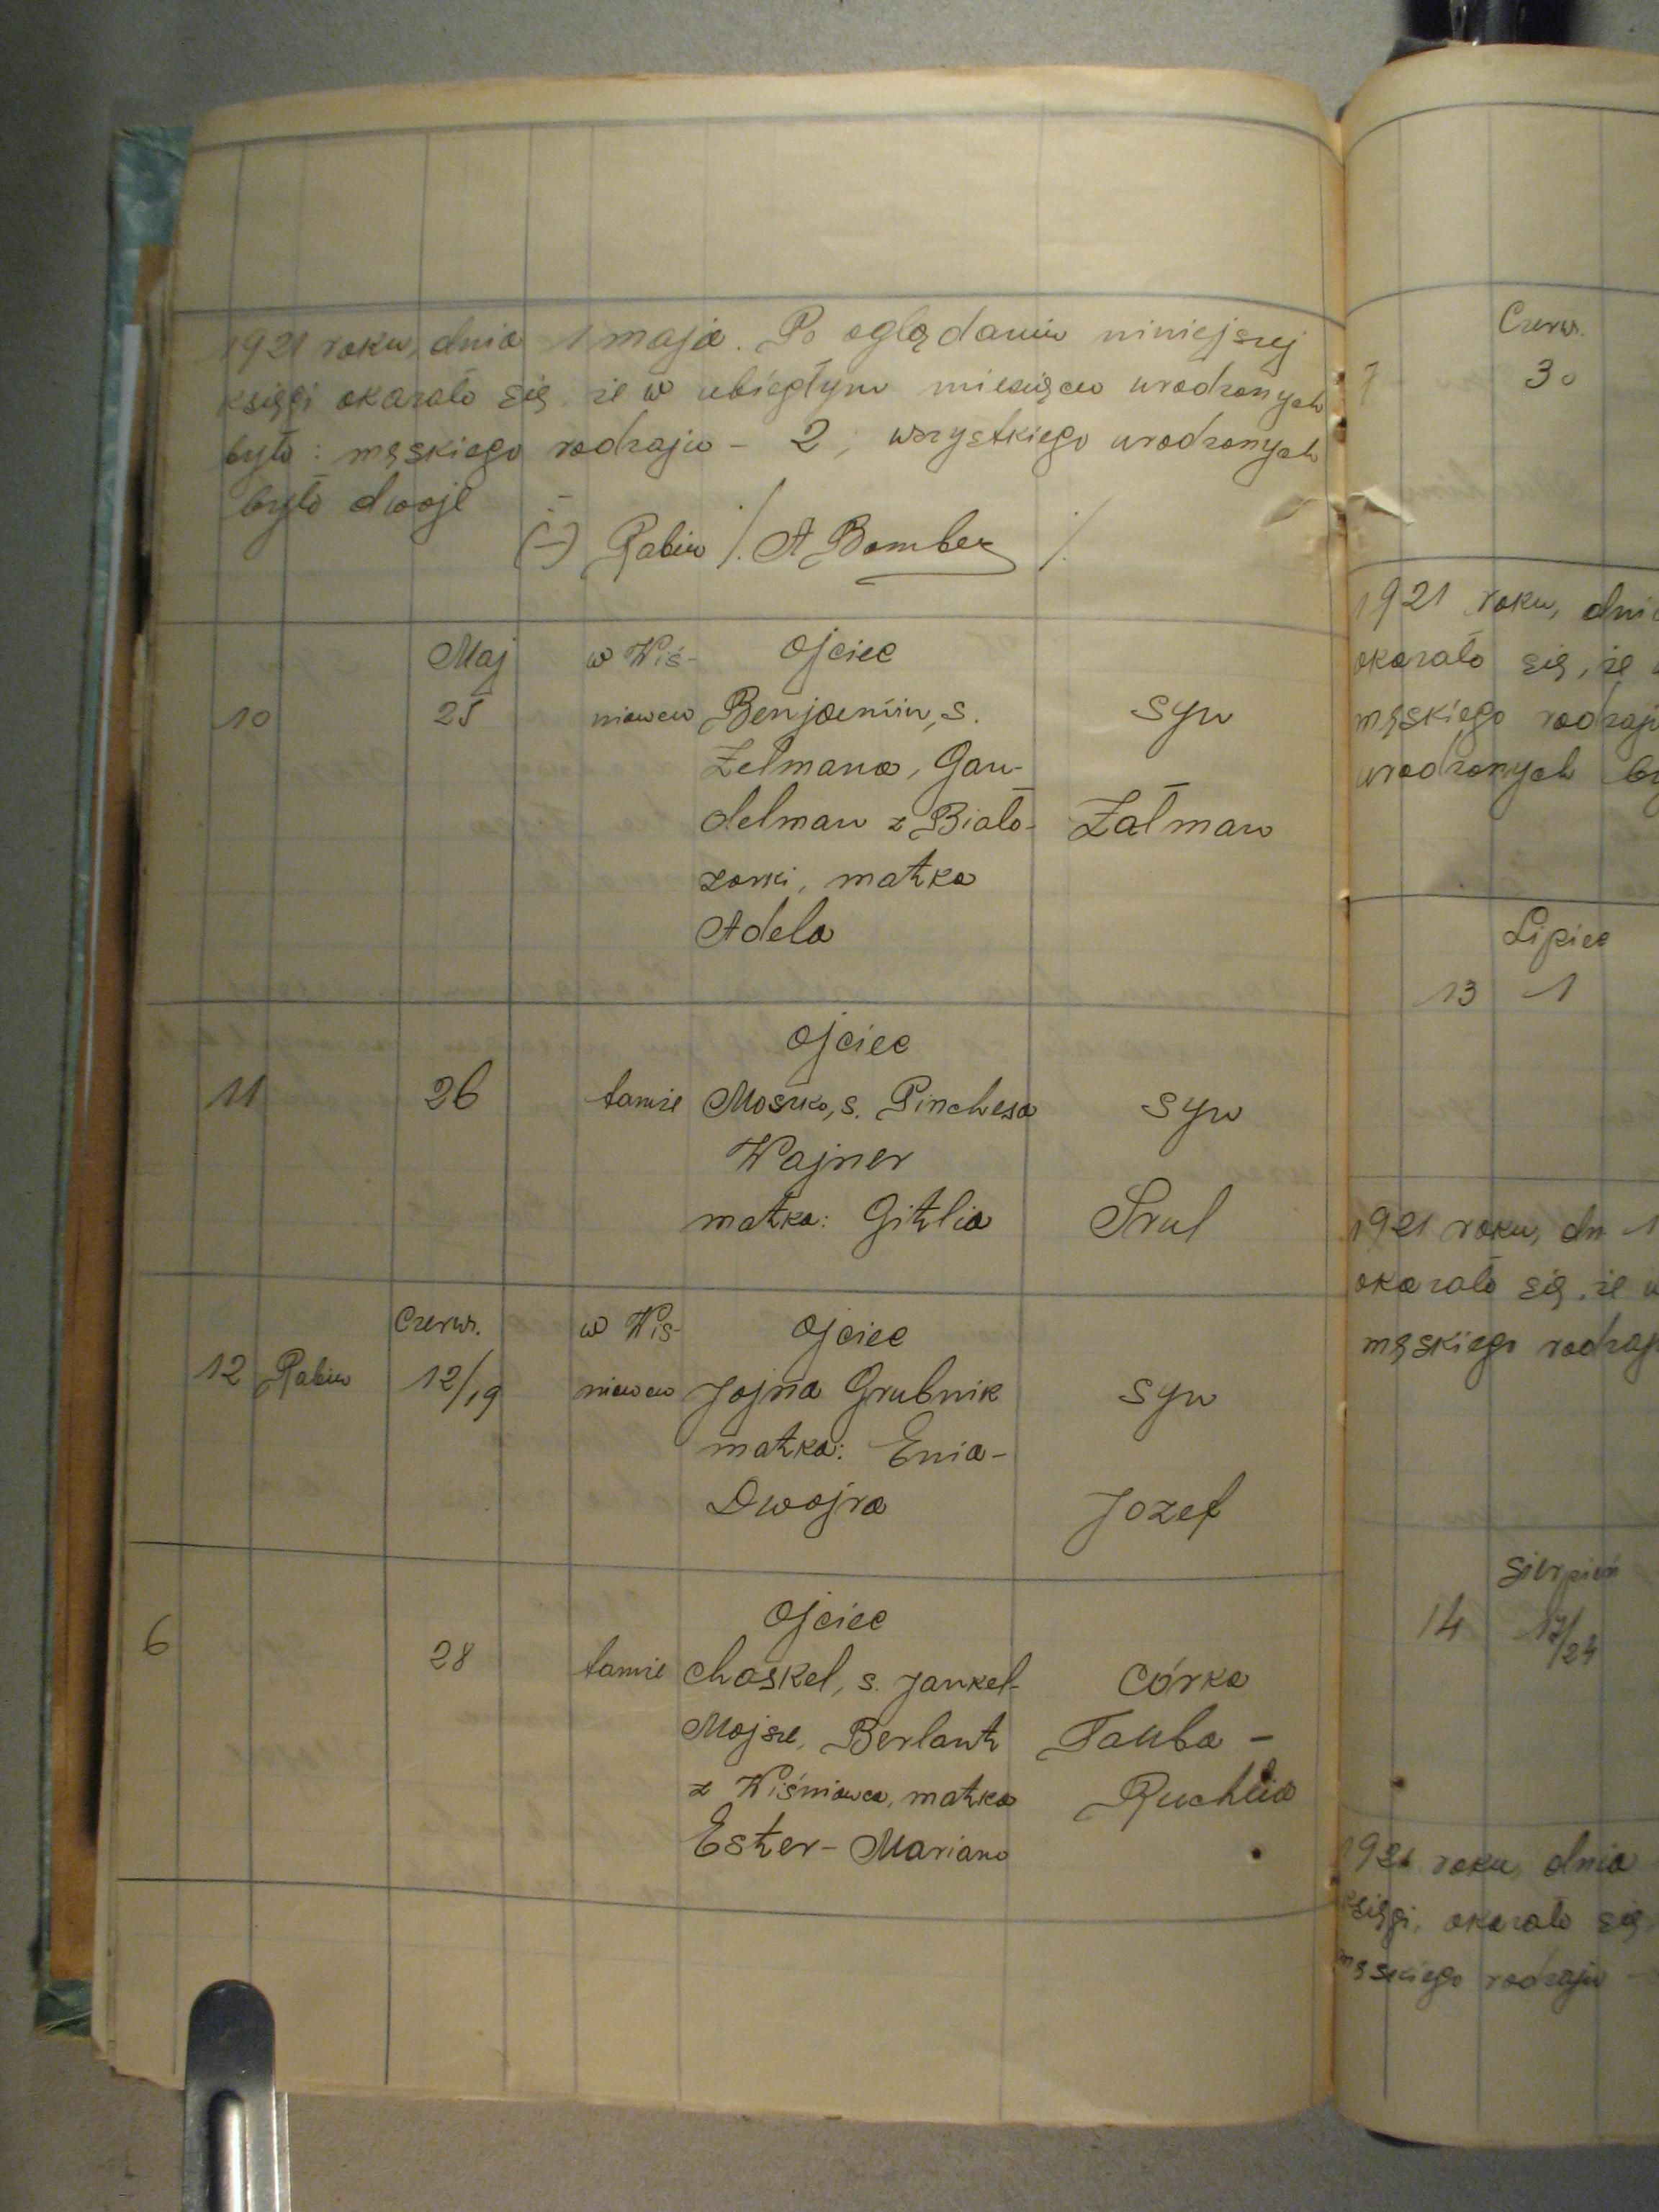 1921 roku, dnia 1 maja. Po oglądaniu niniejszej
księgi okazało się że w ubiegłym miesiącu urodzonych
było: męskiego rodzaju - 2, wszystkiego urodzonych
było dwoje -
(-) Rabin /. A Bomber ./
Maj w Wiś- Ojciec
10 25 niowcu Benjamin, s. syn
Zelmana, Gan-
delman z Biało- Załman
zorki, matka
Adela
Ojciec
11 26 tamże Moszko, s. Pinchesa syn
Wajner
matka: Gitlia Srul
Czerw. w Wis- Ojciec
12 Rabin 12/19 niowcu Jojna Grubnik syn
matka: Enia-
Dwojra Jozef
Ojciec
6 28 tamże Chaskel, s. Jankel- Córka
Mojsze, Berlant Tauba -
z Wiśniowca, matka Ruchlia
Ester - Mariam
Czerw.
7 30
1921 roku, dnia
okazało się, że
męskiego rodzaju
urodzonych
Lipiec
13 1
1921 roku, dn 1
okazało się, że w
męskiego rodzaj
Sierpień
14 17/24
1921 roku, dnia
księgi, okazało się
męskiego rodzaju